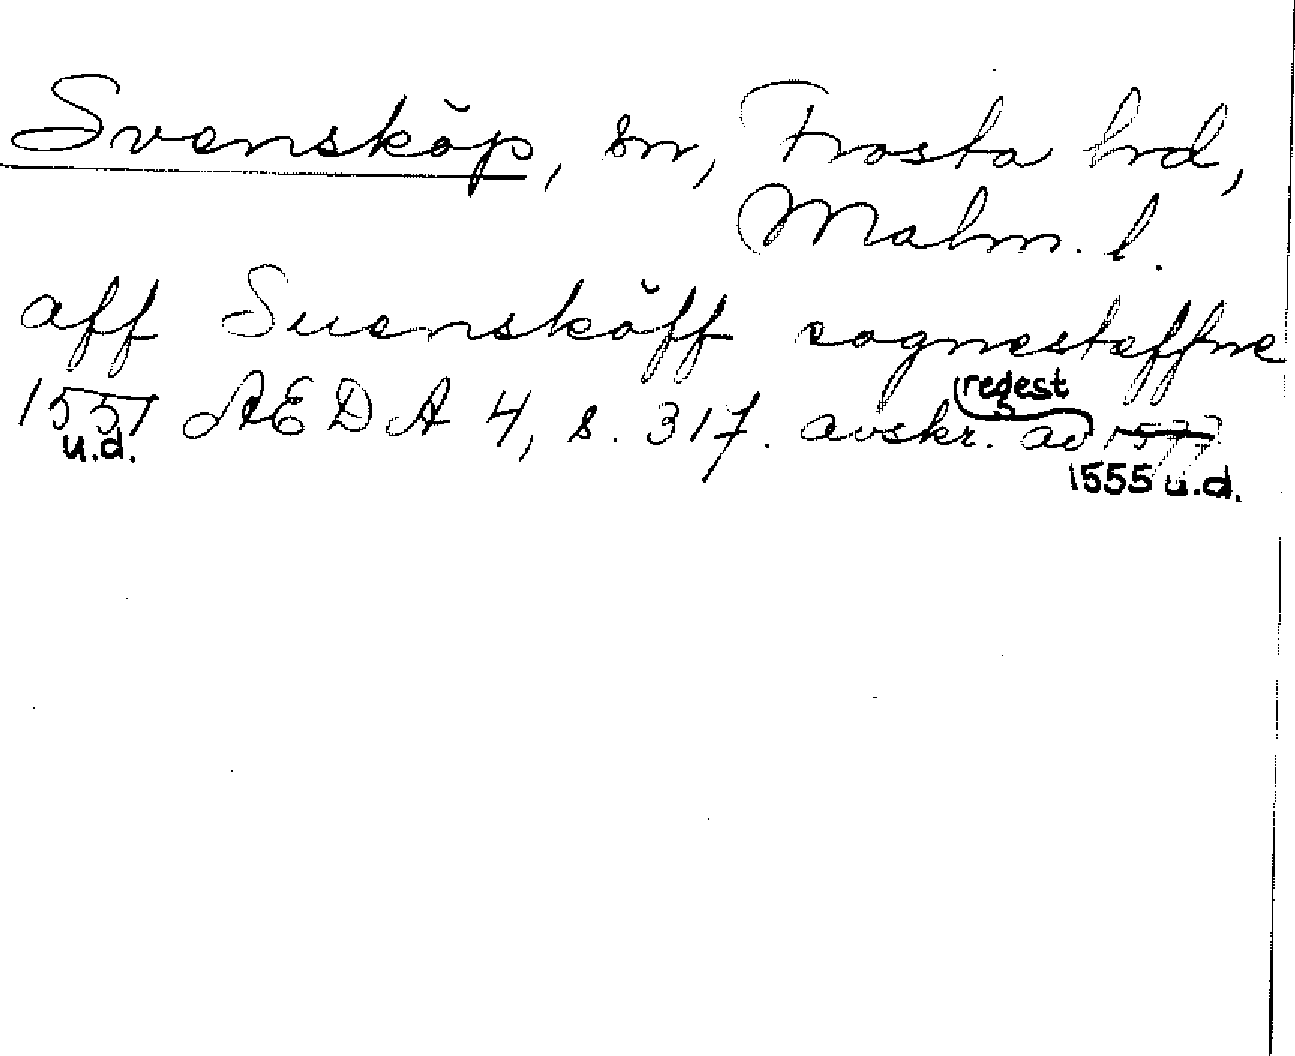 Svensköp, sn, Frosta hrd,
Malm. l.
aff Suensköff sognestæffne
1551 AEDA 4, s. 317. avskr. regest av 1577
u.d. 1555 u.d.